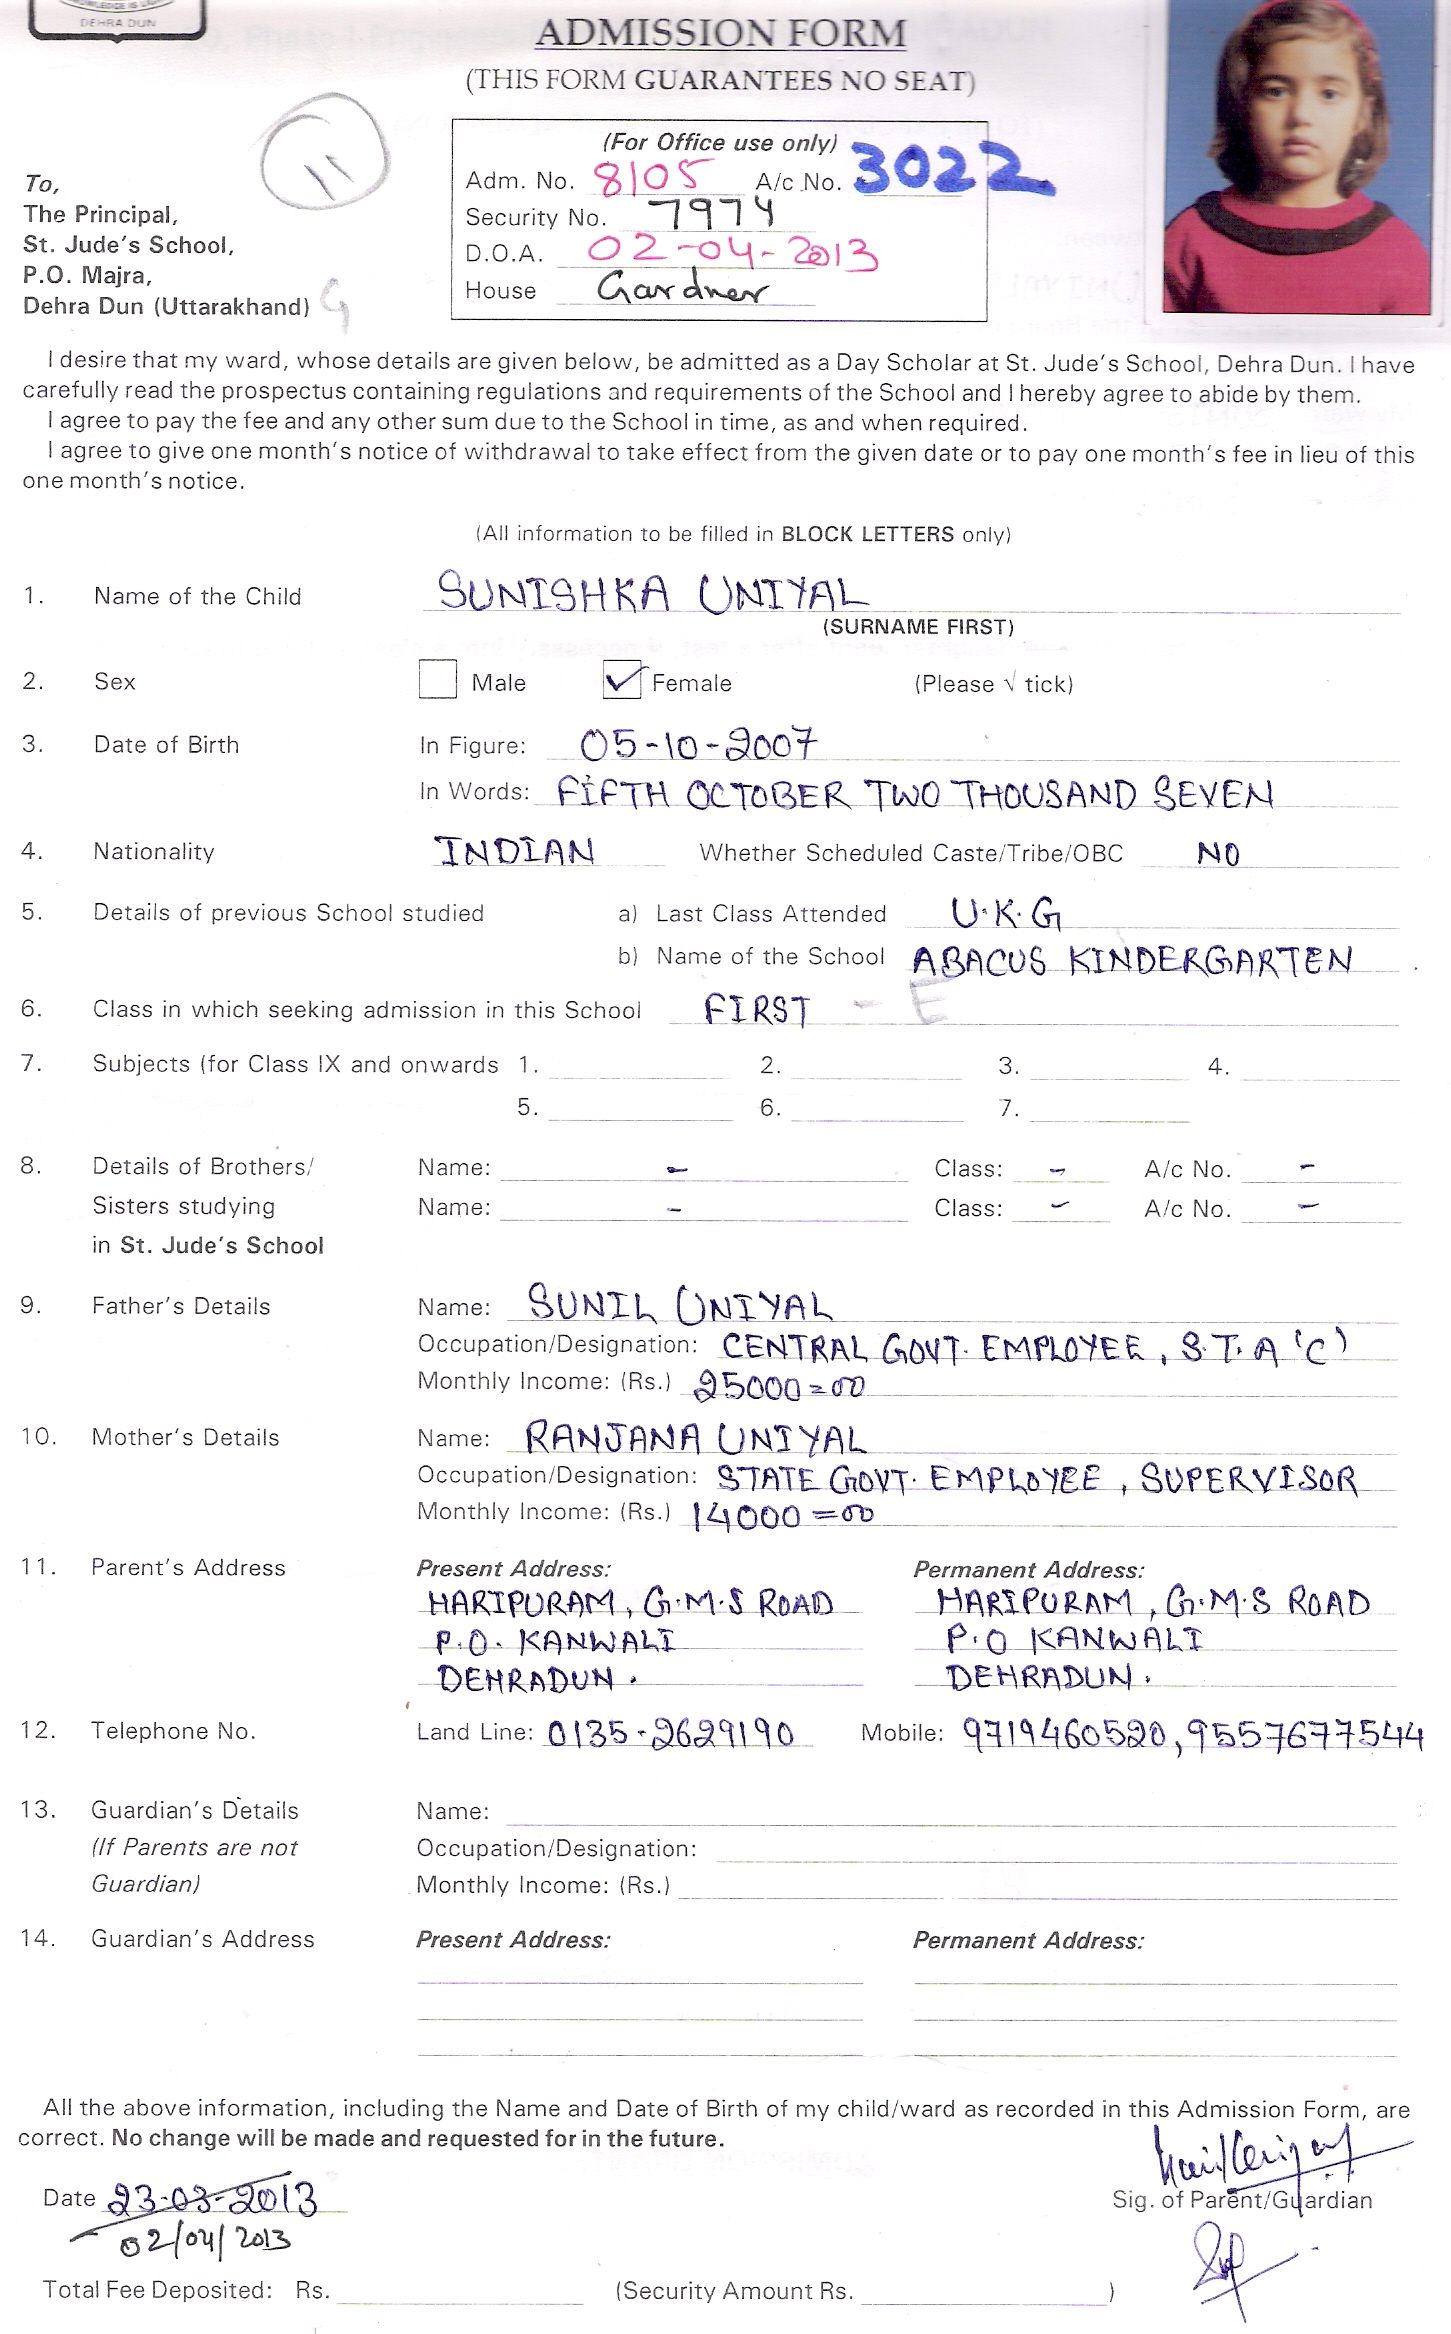 KNOWLEDGE IS LIGHT
DEHRA DUN
ADMISSION FORM
(THIS FORM GUARANTEES NO SEAT)
11
(For Office use only)
Adm. No. 8105 A/c No. 3022
Security No. 7974
D.O.A. 02-04-2013
House Gardner
To,
The Principal,
St. Jude's School,
P.O. Majra,
Dehra Dun (Uttarakhand) G
I desire that my ward, whose details are given below, be admitted as a Day Scholar at St. Jude's School, Dehra Dun. I have
carefully read the prospectus containing regulations and requirements of the School and I hereby agree to abide by them.
I agree to pay the fee and any other sum due to the School in time, as and when required.
I agree to give one month's notice of withdrawal to take effect from the given date or to pay one month's fee in lieu of this
one month's notice.
(All information to be filled in BLOCK LETTERS only)
1. Name of the Child SUNISHKA UNIYAL
(SURNAME FIRST)
2. Sex Male ✓ Female (Please √ tick)
3. Date of Birth In Figure: 05-10-2007
In Words: FIFTH OCTOBER TWO THOUSAND SEVEN
4. Nationality INDIAN Whether Scheduled Caste/Tribe/OBC NO
5. Details of previous School studied a) Last Class Attended U.K.G
b) Name of the School ABACUS KINDERGARTEN
6. Class in which seeking admission in this School FIRST - E
7. Subjects (for Class IX and onwards 1. 2. 3. 4.
5. 6. 7.
8. Details of Brothers/ Name: - Class: - A/c No. -
Sisters studying Name: - Class: - A/c No. -
in St. Jude's School
9. Father's Details Name: SUNIL UNIYAL
Occupation/Designation: CENTRAL GOVT. EMPLOYEE, S.T.A 'C'
Monthly Income: (Rs.) 25000=00
10. Mother's Details Name: RANJANA UNIYAL
Occupation/Designation: STATE GOVT. EMPLOYEE, SUPERVISOR
Monthly Income: (Rs.) 14000=00
11. Parent's Address Present Address: Permanent Address:
HARIPURAM, G.M.S ROAD HARIPURAM, G.M.S ROAD
P.O. KANWALI P.O KANWALI
DEHRADUN. DEHRADUN.
12. Telephone No. Land Line: 0135-2629190 Mobile: 9719460520, 9557677544
13. Guardian's Details Name:
(If Parents are not Occupation/Designation:
Guardian) Monthly Income: (Rs.)
14. Guardian's Address Present Address: Permanent Address:
All the above information, including the Name and Date of Birth of my child/ward as recorded in this Admission Form, are
correct. No change will be made and requested for in the future.
Date 23-03-2013
02/04/2013
Sig. of Parent/Guardian
Total Fee Deposited: Rs. (Security Amount Rs. )